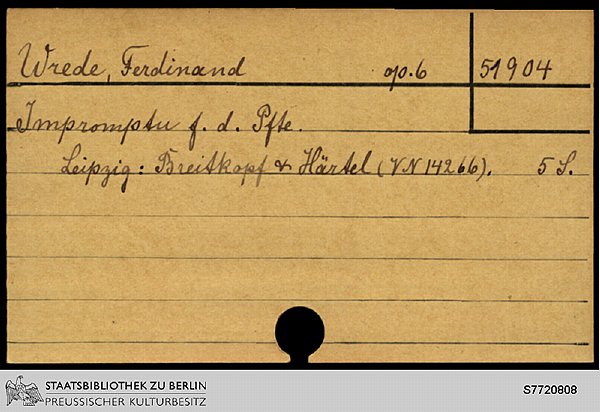 Wrede, Ferdinand op. 6 51904
Impromptu f. d. Pfte.
Leipzig: Breitkopf & Härtel (VN 14266). 5 S.
STAATSBIBLIOTHEK ZU BERLIN
PREUSSISCHER KULTURBESITZ
S7720808